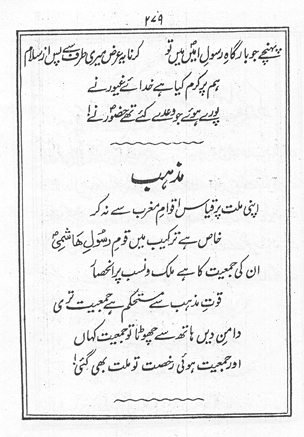 ۲۷۹
پہنچے جو بارگاہِ رسولِ امیںؐ میں تُو کرنا یہ عرض میری طرف سے پس از سلام
ہم پر کرم کیا ہے خدائے غیور نے
پورے ہوئے جو وعدے کئے تھے حضورؐ نے
مذہب
اپنی ملت پر قیاس اقوامِ مغرب سے نہ کر
خاص ہے ترکیب میں قومِ رسولِ ہاشمیؐ
ان کی جمعیت کا ہے ملک و نسب پر انحصار
قوتِ مذہب سے مستحکم ہے جمعیت تری
دامنِ دیں ہاتھ سے چھوٹا تو جمعیت کہاں
اور جمعیت ہوئی رخصت تو ملت بھی گئی!